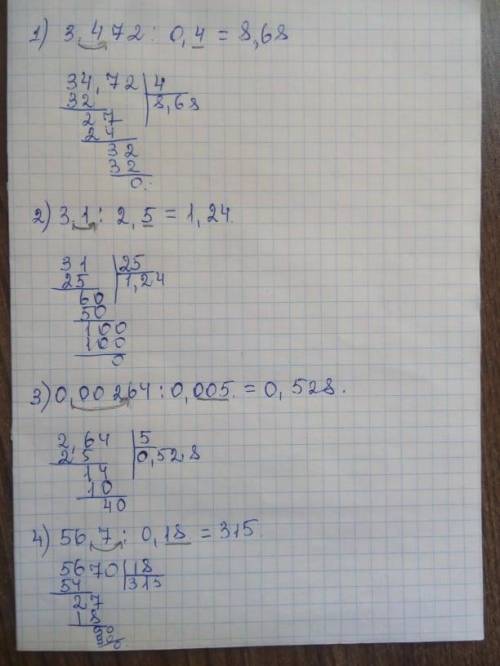 1) 3,472 : 0,4 = 8,68
34,72 | 4
32 | 8,68
27
24
32
32
0.
2) 3,1 : 2,5 = 1,24.
31 | 25
25 | 1,24
60
50
100
100
0
3) 0,00264 : 0,005 = 0,528.
2,64 | 5
25 | 0,528
14
10
40
4) 56,7 : 0,18 = 315.
5670 | 18
54 | 315
27
18
90